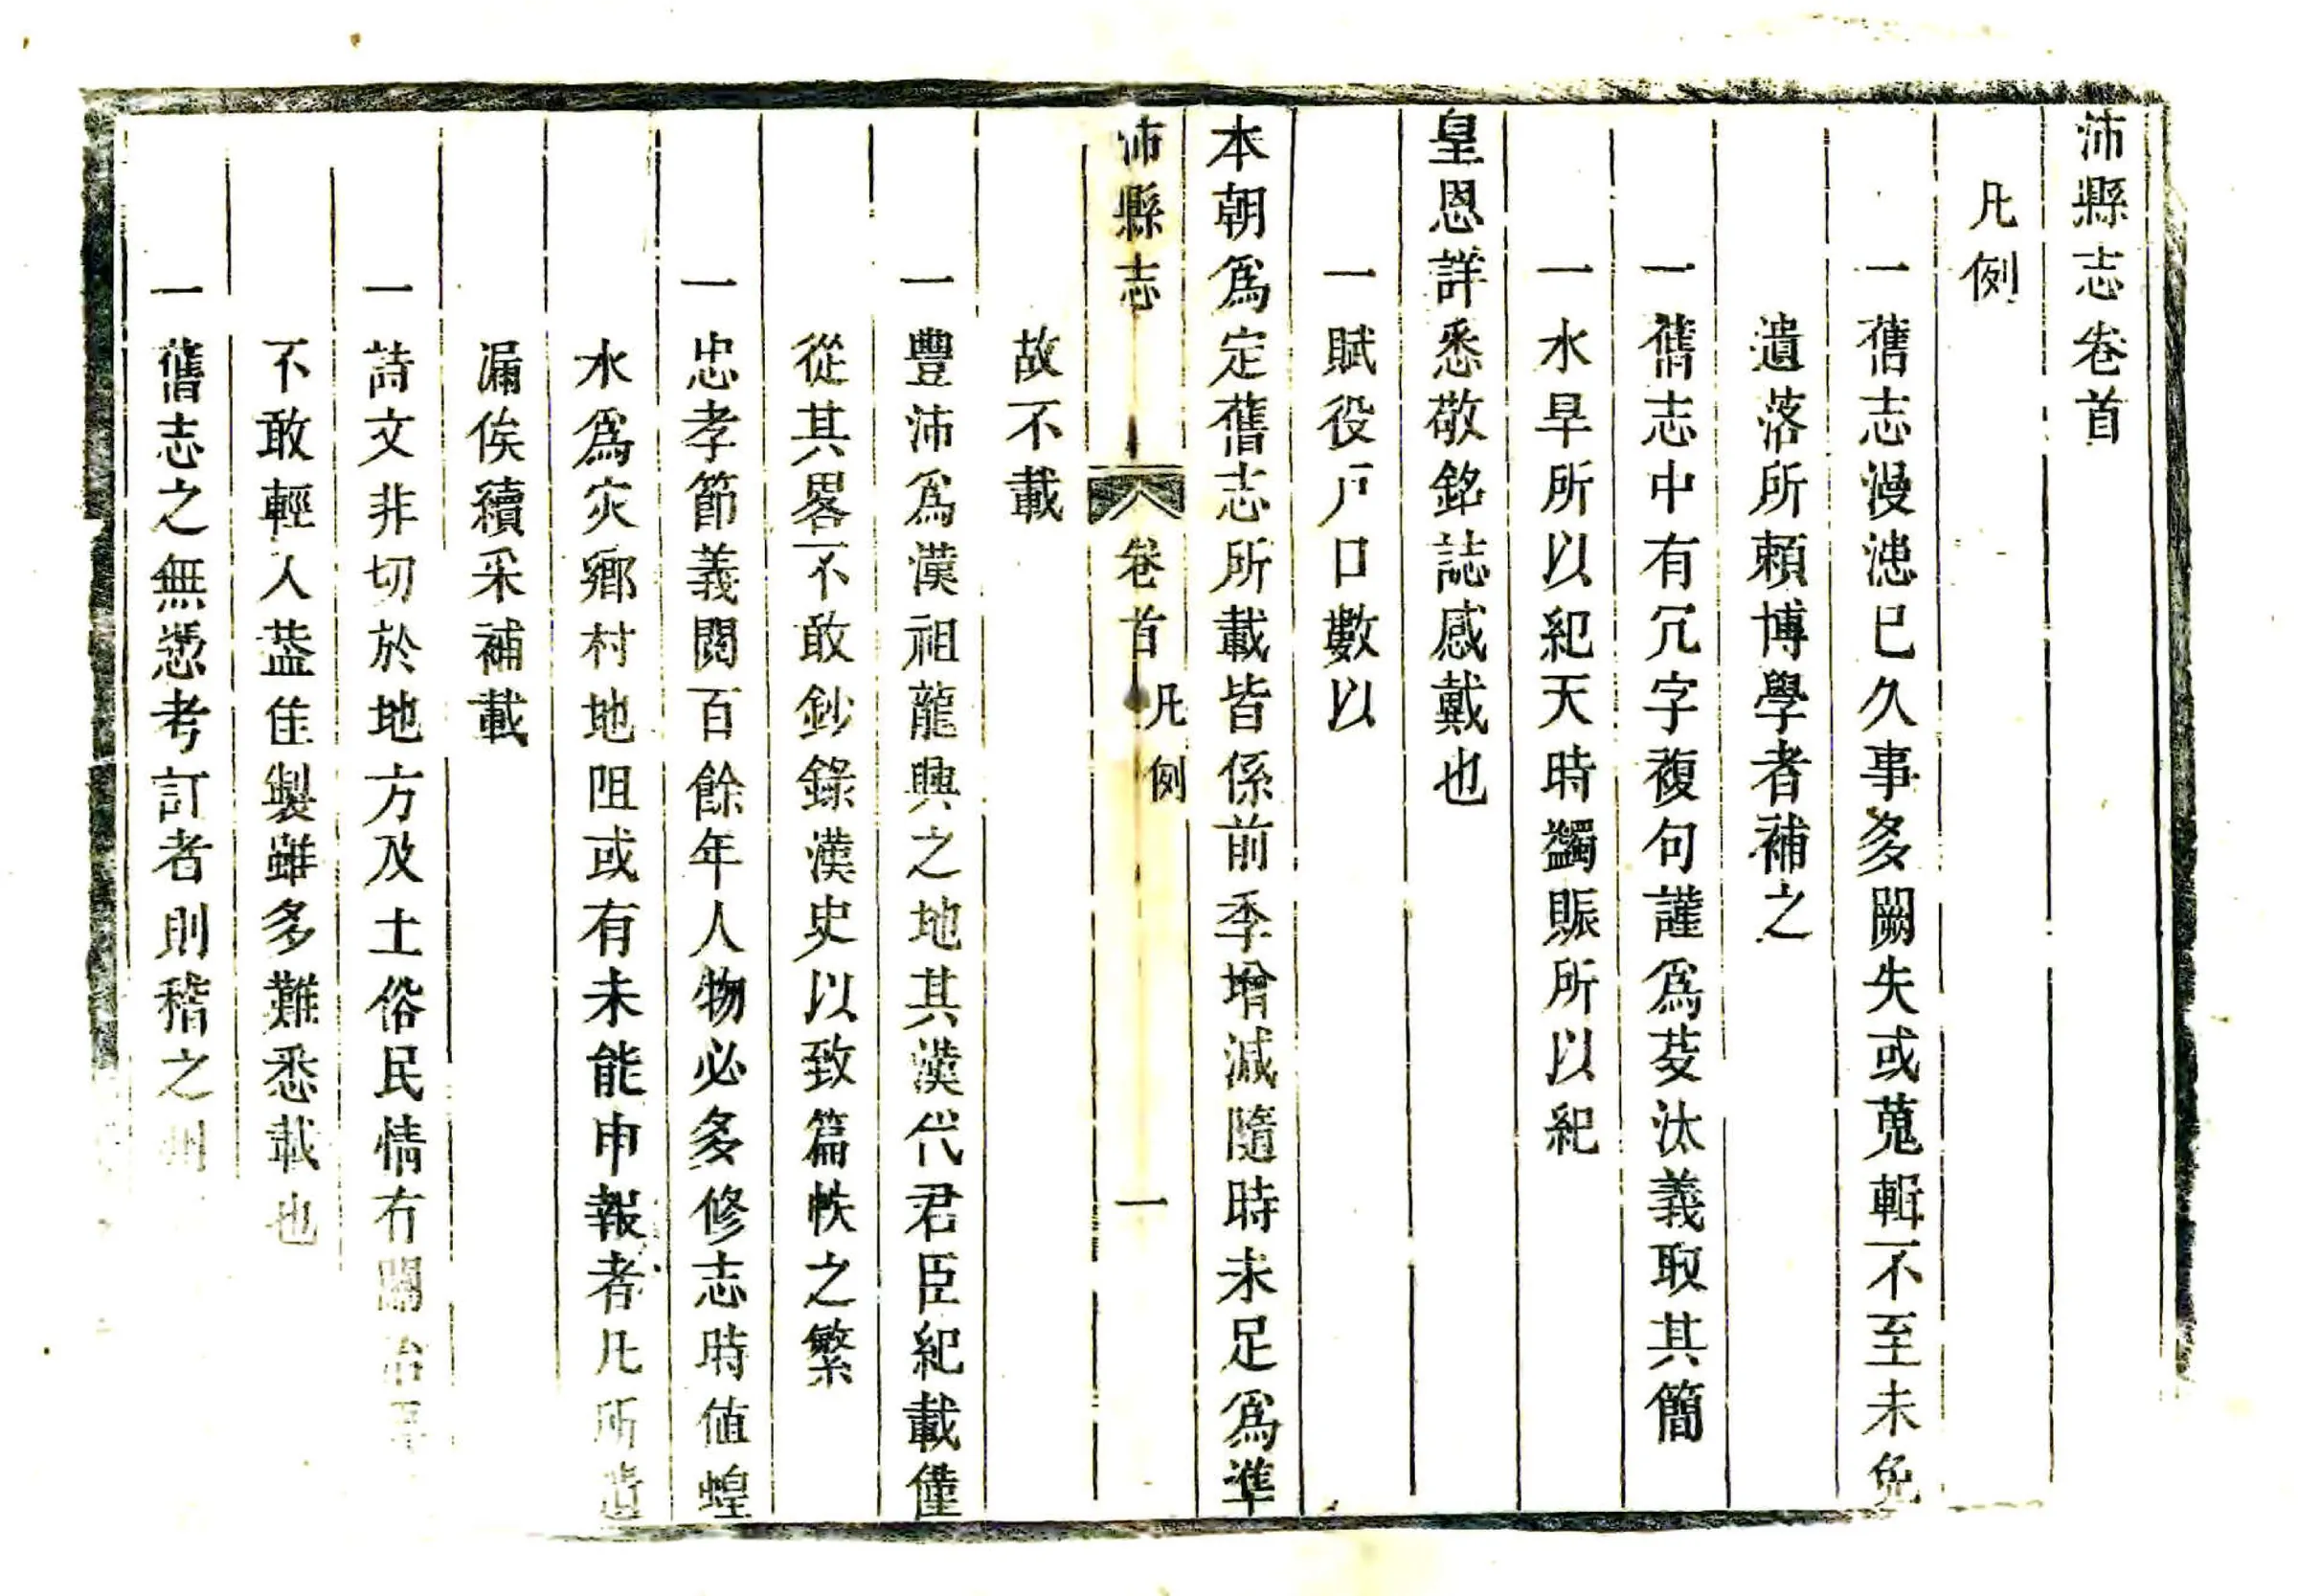 沛縣志卷首
凡例
一舊志漫漶已久事多闕失或蒐輯不至未免
遺落所賴博學者補之
一舊志中有冗字複句謹爲芟汰義取其簡
一水旱所以紀天時蠲賑所以紀
皇恩詳悉敬銘誌感戴也
一賦役戸口數以
本朝爲定舊志所載皆係前季增減隨時未足爲準
沛縣志 卷首 凡例 一
故不載
一豐沛爲漢祖龍興之地其漢代君臣紀載僅
從其畧不敢鈔錄漢史以致篇帙之繁
一忠孝節義閱百餘年人物必多修志時値蝗
水爲灾鄉村地阻或有未能申報者凡所遺
漏俟續采補載
一詩文非切於地方及土俗民情有關治
不敢輕入葢佳製雖多難悉載也
一舊志之無憑考訂者則稽之州